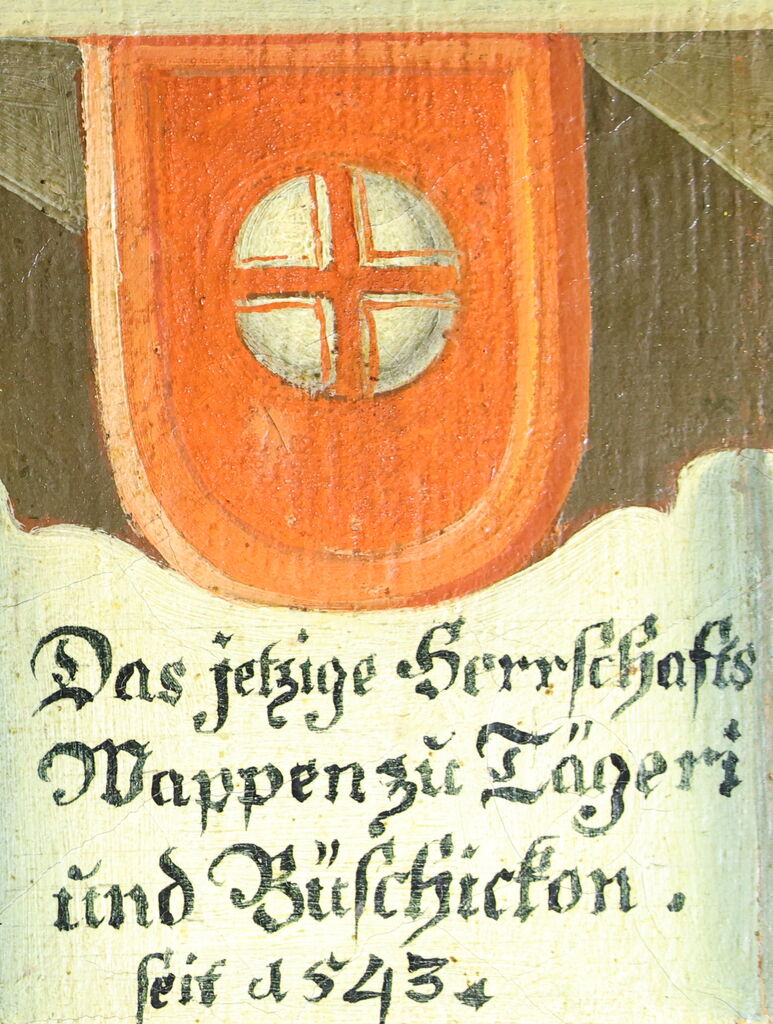 Das jetzige Herrschafts
Wappen zu Tägeri
und Büschickon.
seit 1543.